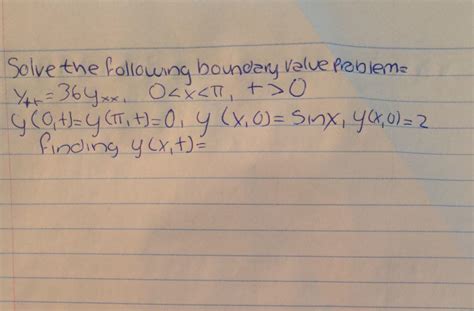 Solve the following boundary value problem=
ytt=36yxx, 0<x<π, t>0
y(0,t)=y(π,t)=0, y(x,0)=sinx, y(x,0)=2
finding y(x,t)=